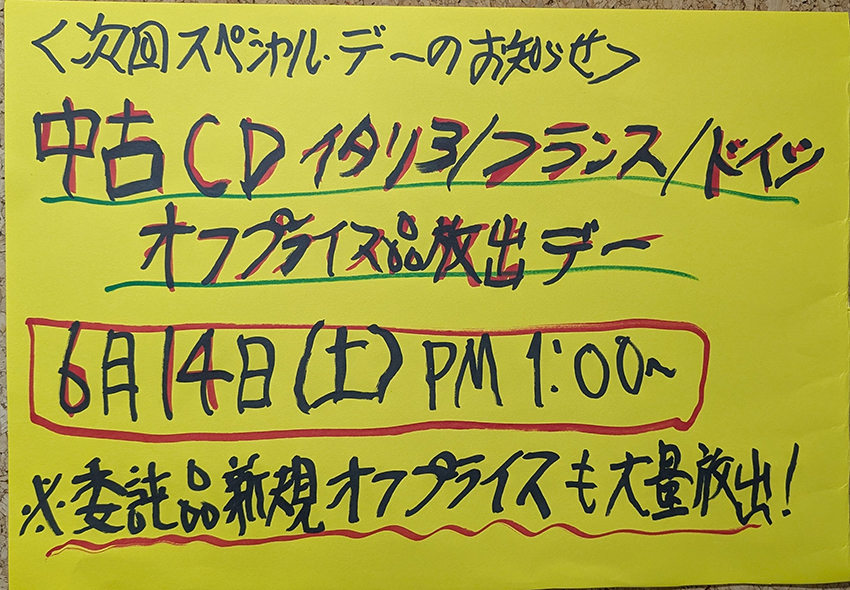 <次回スペシャル・デーのお知らせ>
中古CDイタリヨ/フランス/ドイツ
オフプライス品放出デー
6月14日(土)PM 1:00~
※委託品新規オフプライスも大量放出!